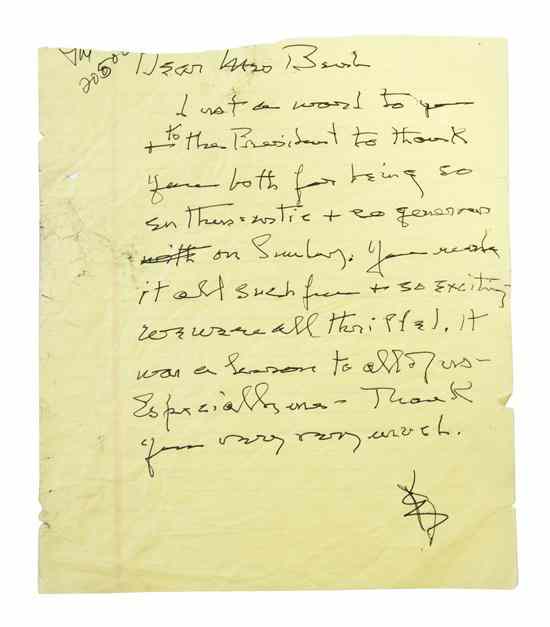 200
Dear Mrs Bush
Just a word to you
+ to the President to thank
you both for being so
enthusiastic + so generous
with on Sunday. You made
it all such fun + so exciting
we were all thrilled. It
was a lesson to all of us -
Especially me - Thank
you very very much.